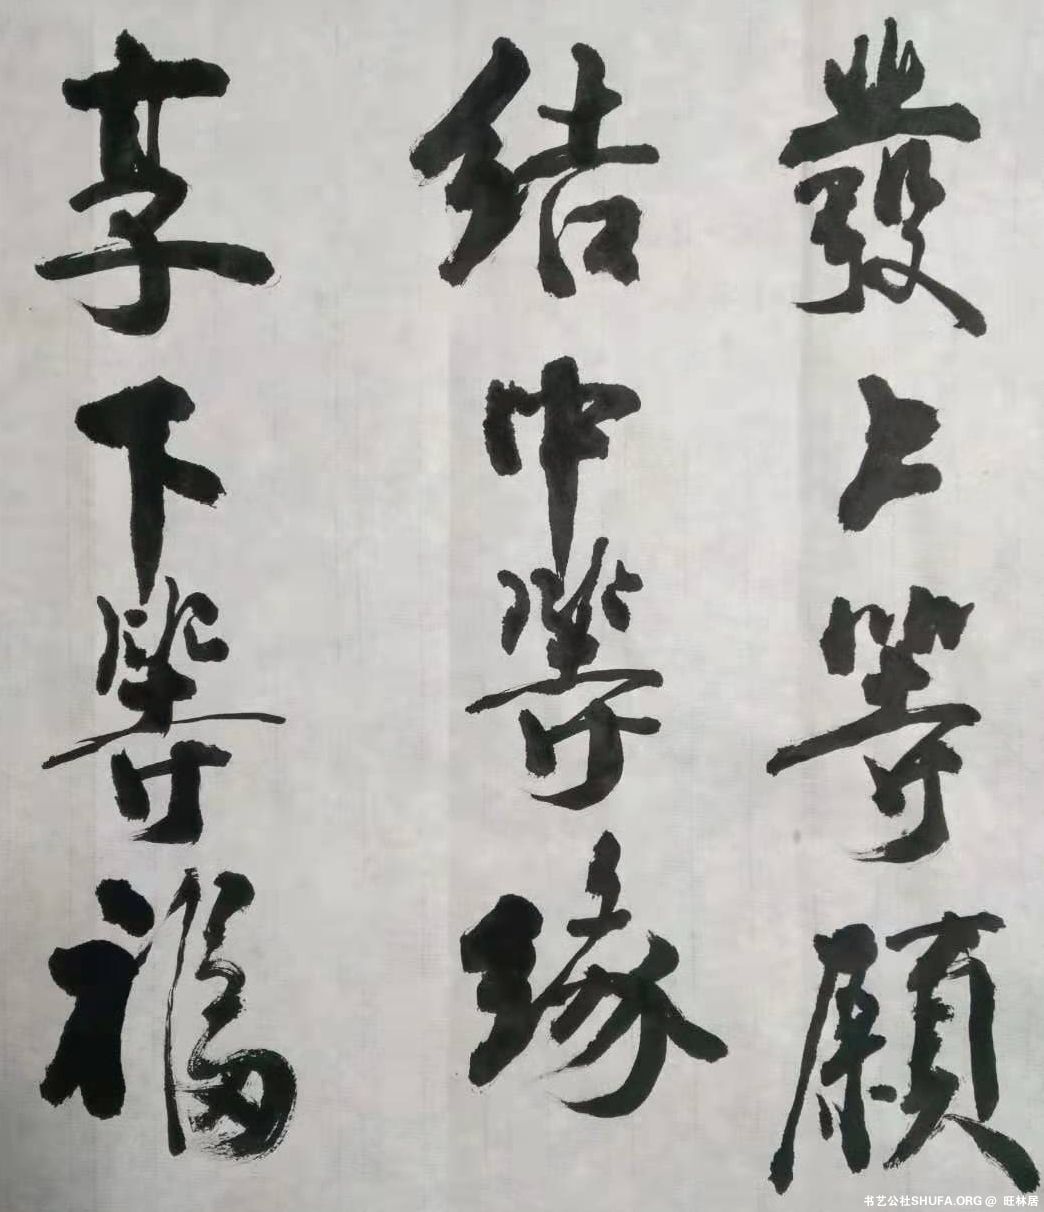 發上等願
結中等緣
享下等福
书艺公社SHUFA.ORG @ 旺林居